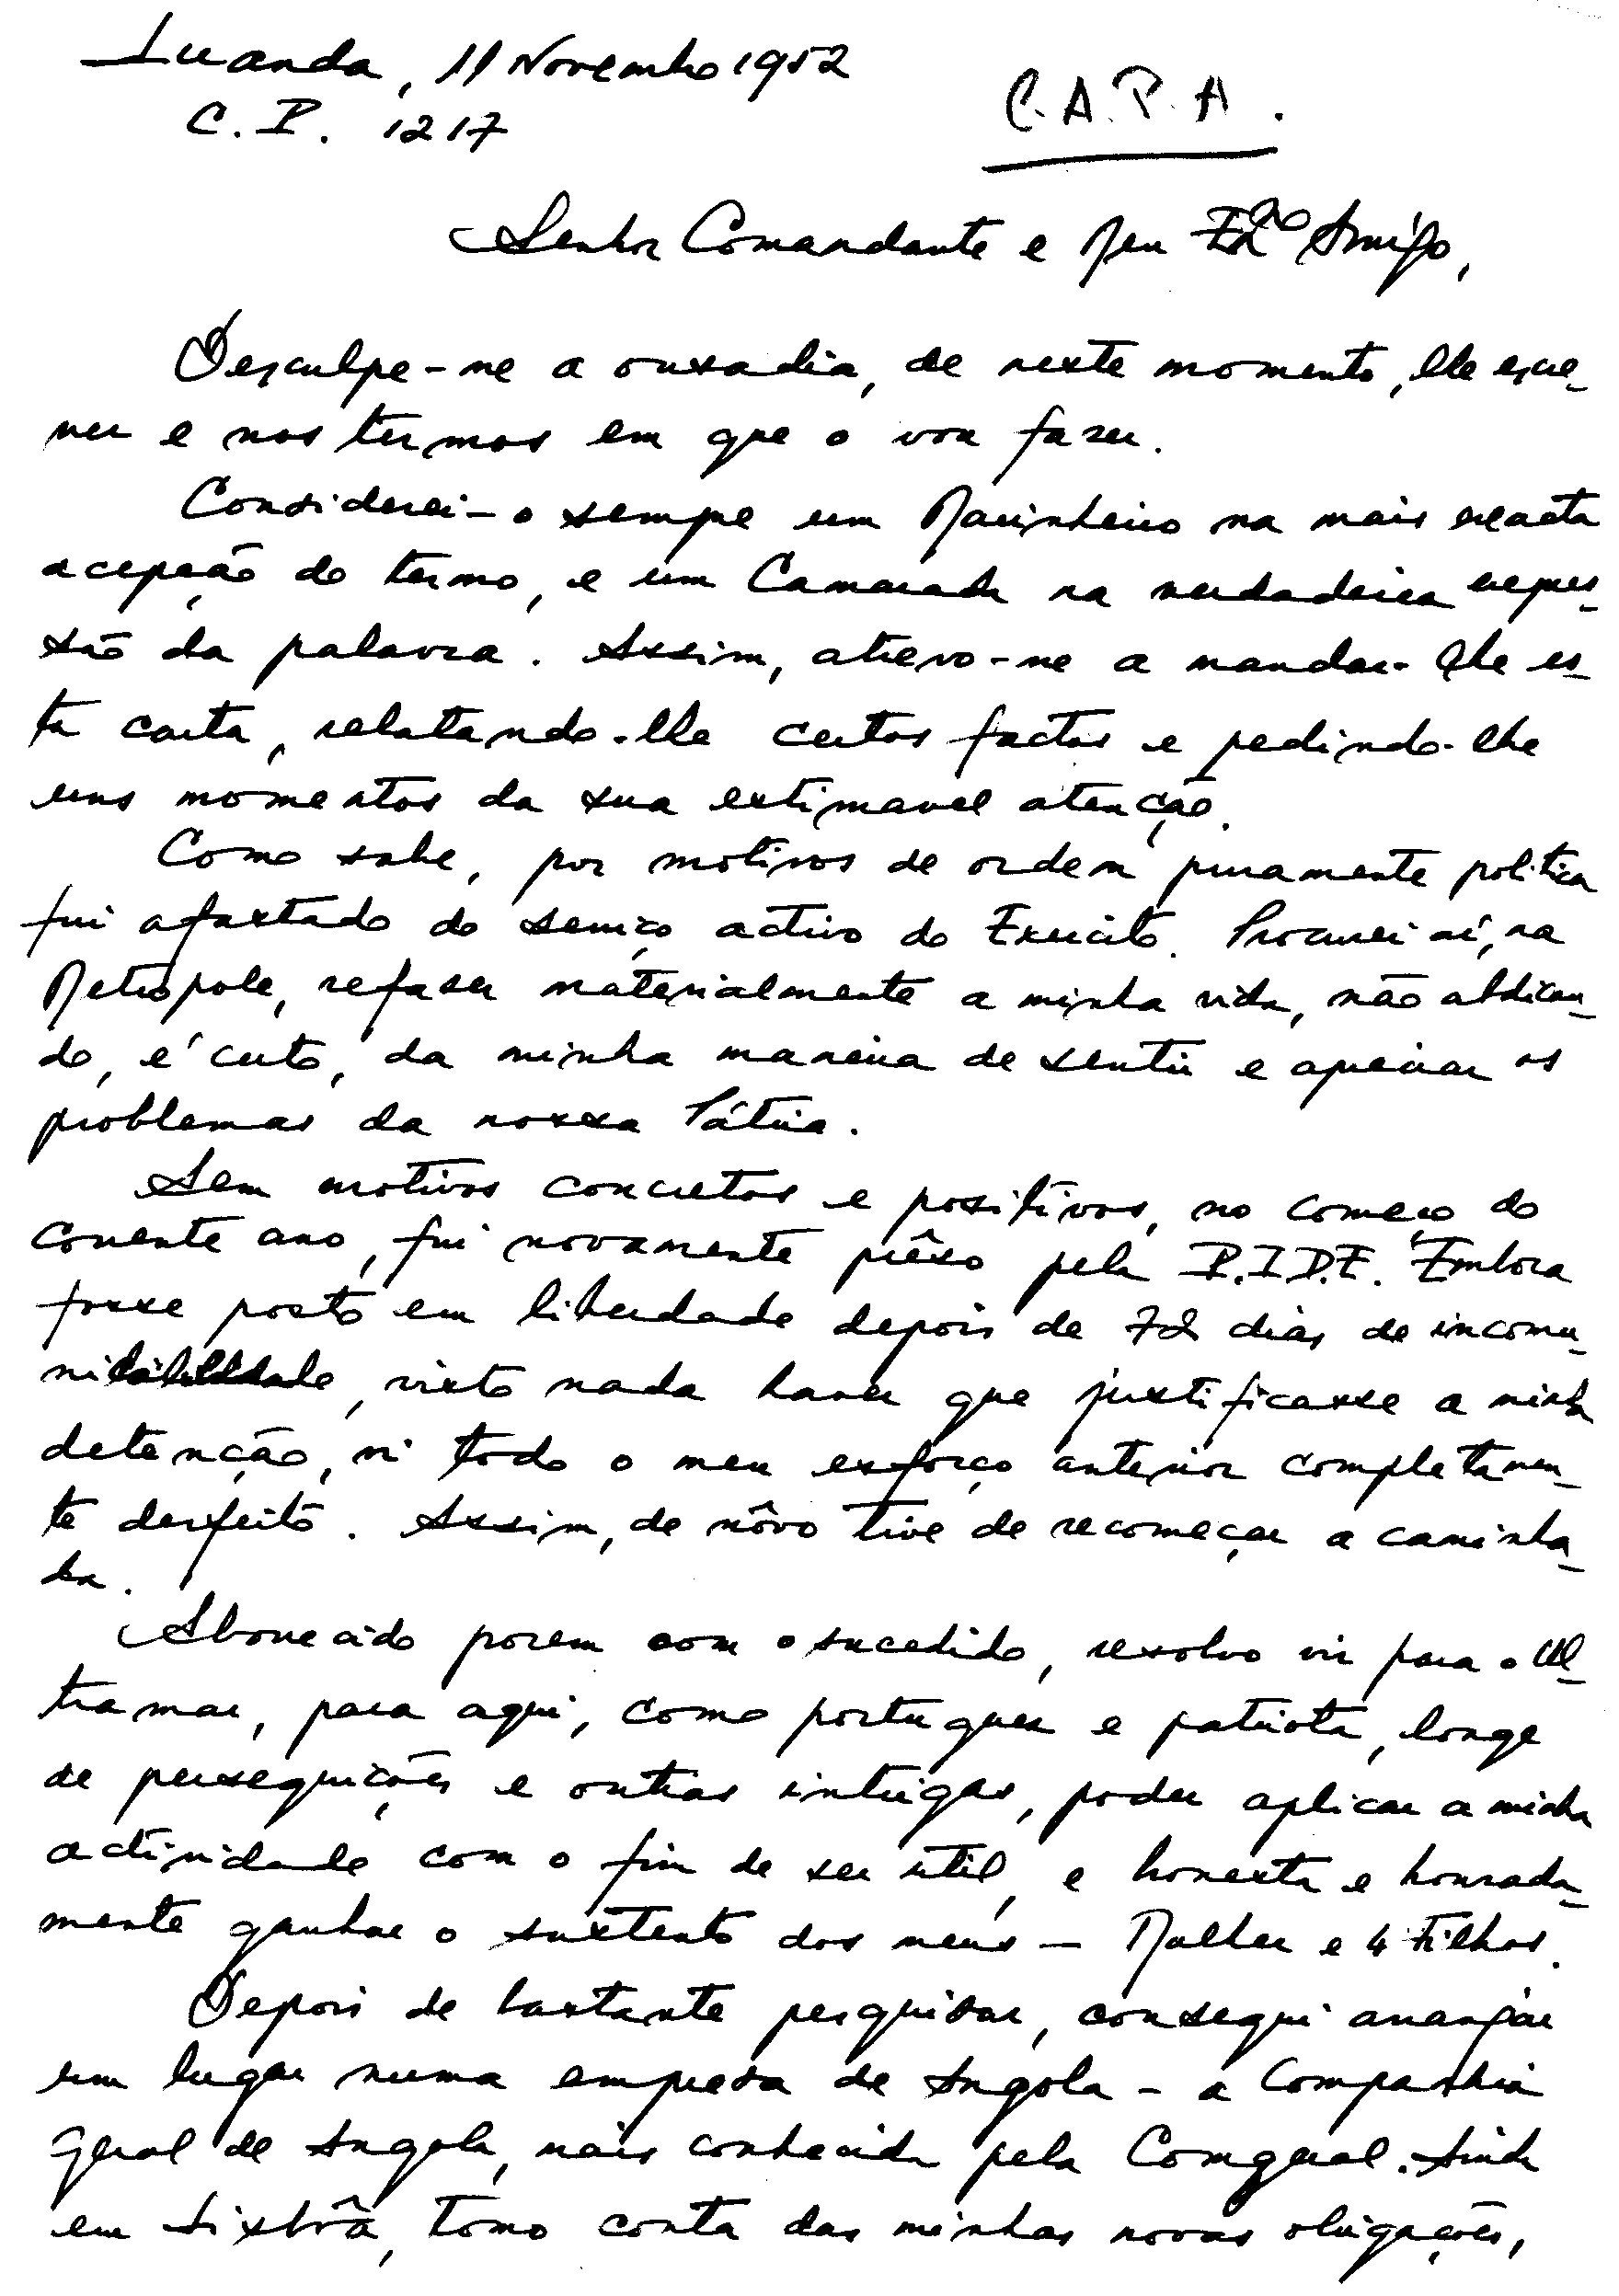 Luanda, 11 Novembro 1952
C. P. 1217
C.A.P.A.
Senhor Comandante e Meu Exmo Amigo,
Desculpe-me a ousadia, de neste momento, lhe escre-
ver e nos termos em que o vou fazer.
Considerei-o sempre um Marinheiro na mais exacta
acepção do termo, e um Camarada na verdadeira expres-
são da palavra. Assim, atrevo-me a mandar-lhe es-
ta carta, relatando-lhe certos factos e pedindo-lhe
uns momentos da sua estimavel atenção.
Como sabe, por motivos de ordem puramente politica
fui afastado do serviço activo do Exercito. Procurei aí, na
Metrópole, refazer materialmente a minha vida, não abdican-
do, é certo, da minha maneira de sentir e apreciar os
problemas da nossa Pátria.
Sem motivos concretos e positivos, no começo do
corrente ano, fui novamente prêso pela P.I.D.E. Embora
fosse posto em liberdade depois de 72 dias de incomu-
nicabilidade, visto nada haver que justificasse a minha
detenção, vi todo o meu esforço anterior completamen-
te desfeito. Assim, de nôvo tive de recomeçar a caminha-
da.
Aborrecido porem com o sucedido, resolvo vir para o Ul-
tramar, para aqui, como portugues e patriota, longe
de perseguições e outras intrigas, poder aplicar a minha
actividade com o fim de ser util, e honesta e honrada-
mente ganhar o sustento dos meus - Mulher e 4 Filhos.
Depois de bastante pesquisar, consegui arranjar
um lugar numa empresa de Angola - a Companhia
Geral de Angola, mais conhecida pela Comgeral. Ainda
em Lisbôa, tomo conta das minhas novas obrigações,